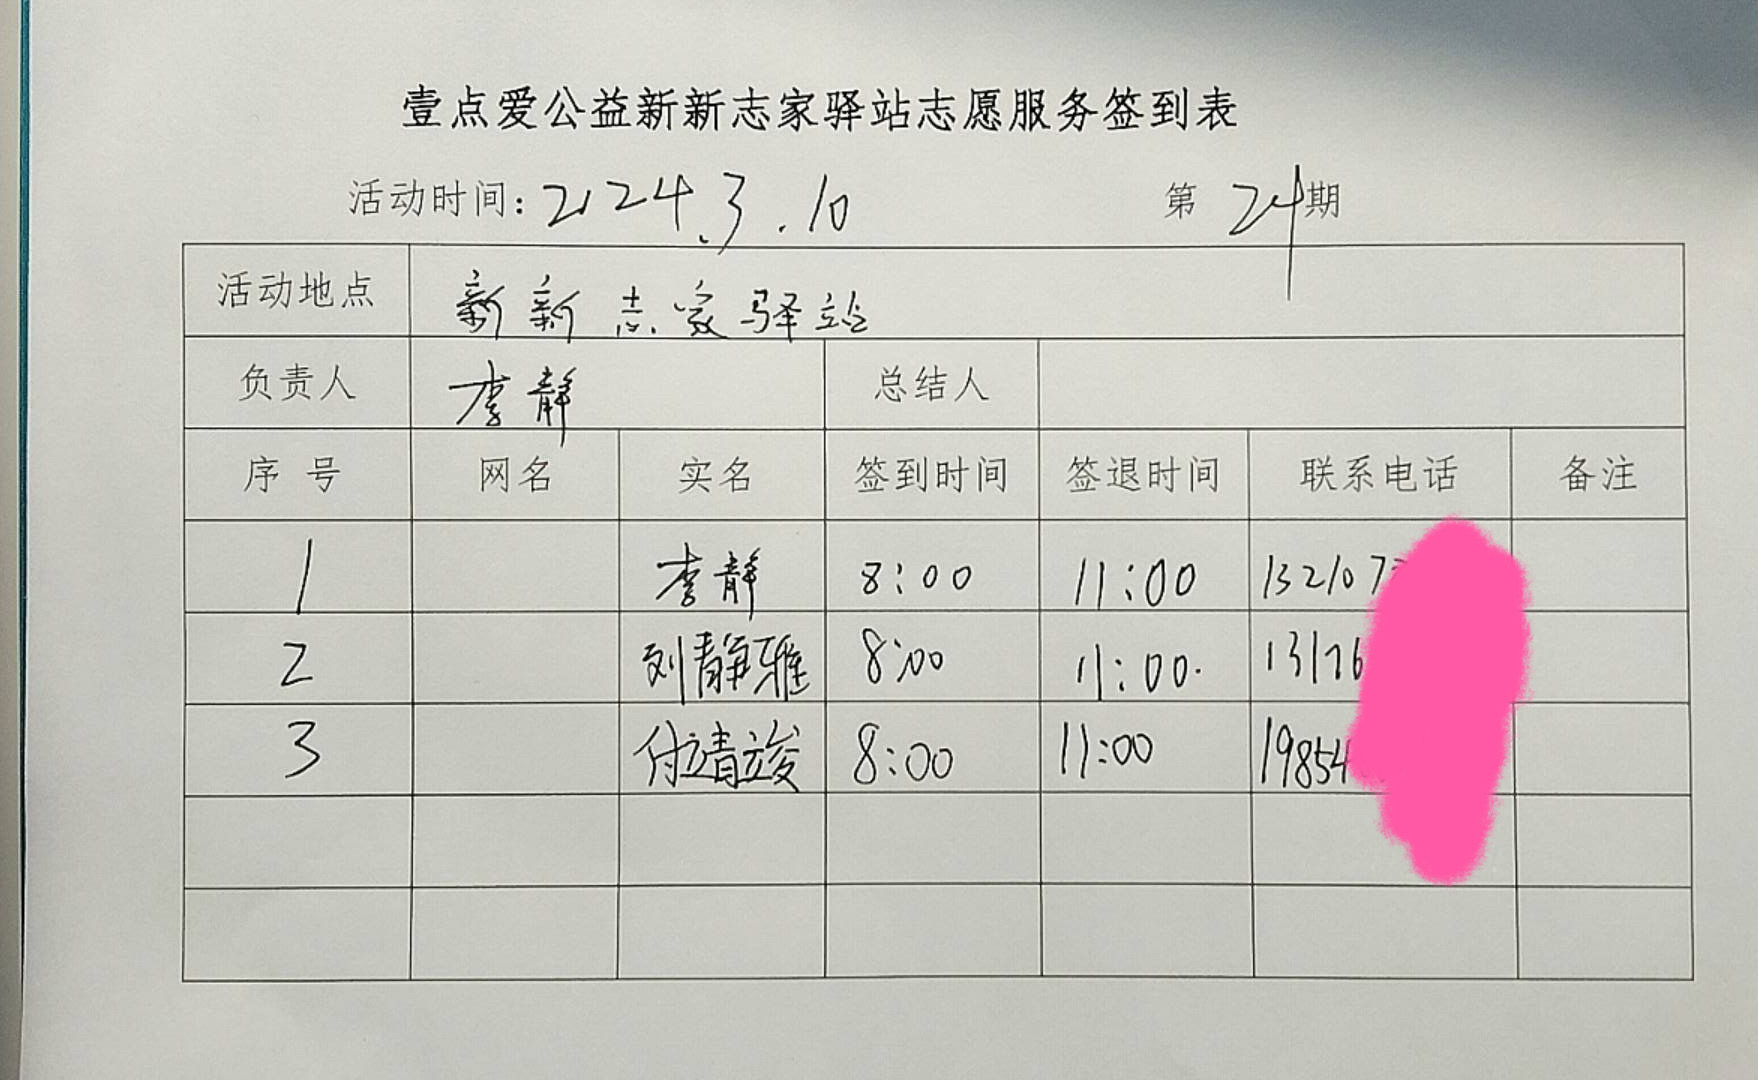 壹点爱公益新新志家驿站志愿服务签到表
活动时间：2024.3.10 第 24 期
活动地点 新新志家驿站
负责人 李静 总结人
序号 网名 实名 签到时间 签退时间 联系电话 备注
1 李静 8:00 11:00 132107
2 刘静雅 8:00 11:00. 13176
3 付靖竣 8:00 11:00 19854